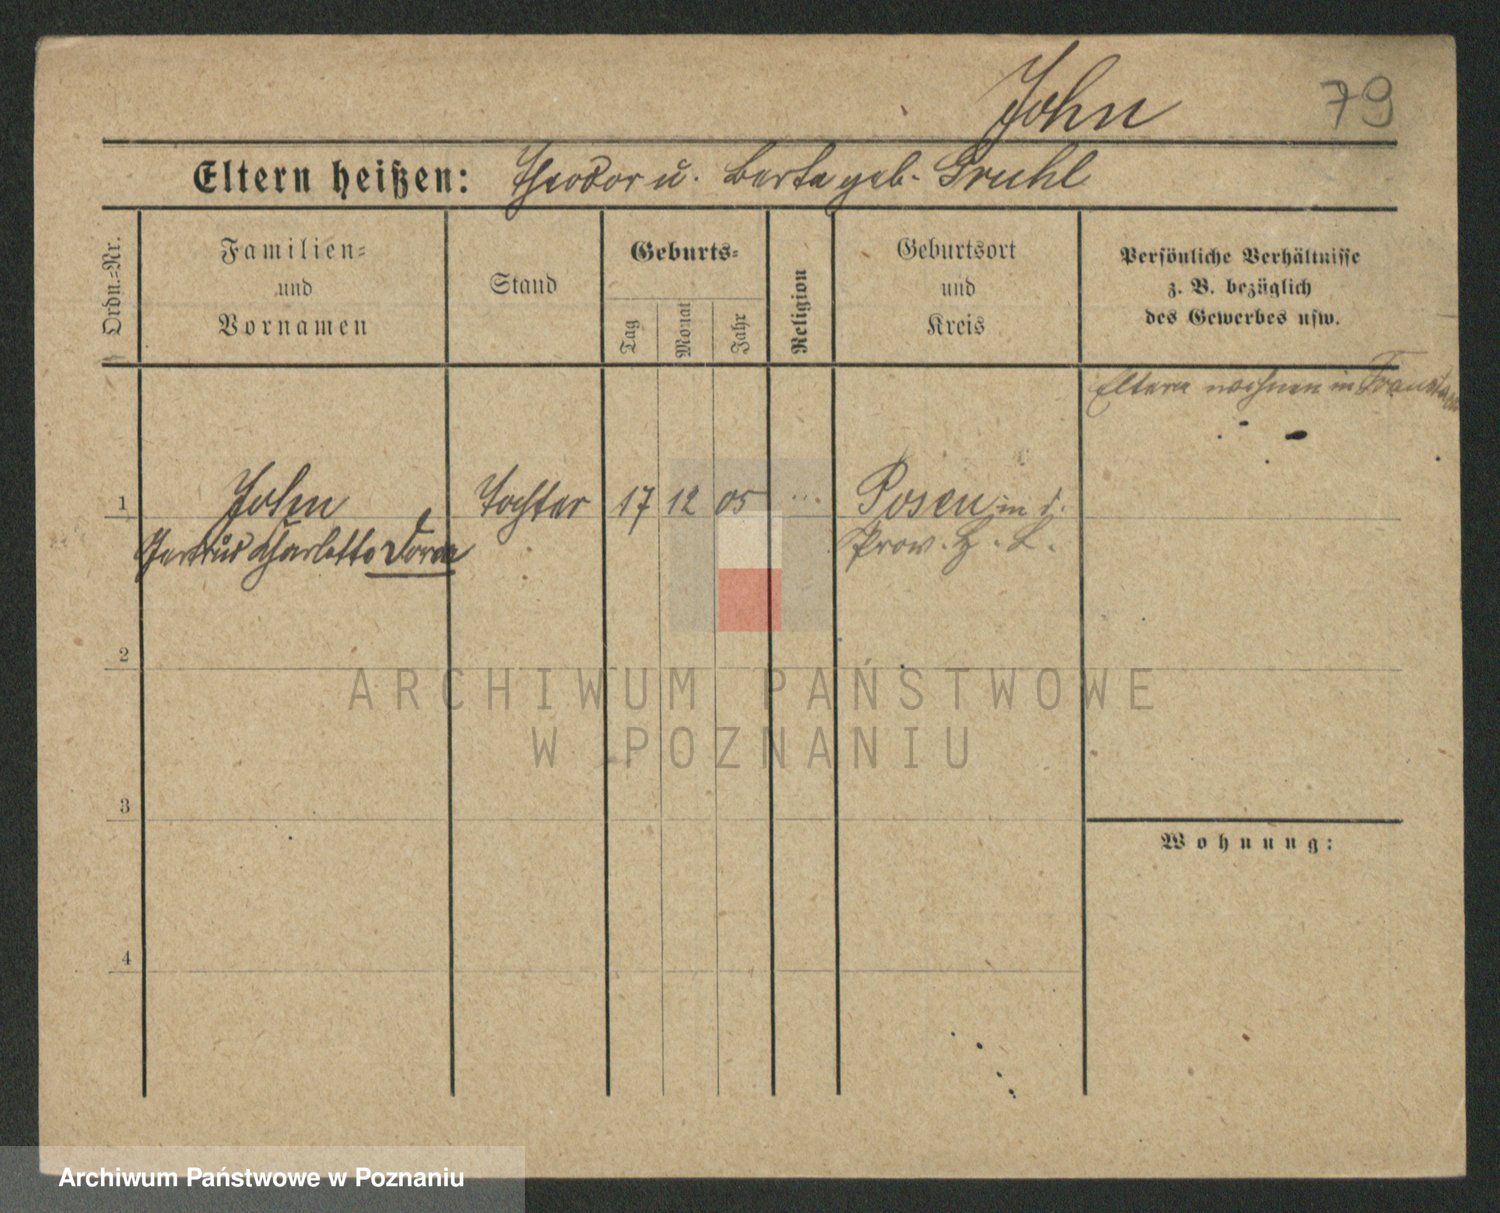 John
79
Eltern heißen: Theodor u. Berta geb. Gruhl
Ordn.-Nr.
Familien-
und
Vornamen
Stand
Geburts-
Tag
Monat
Jahr
Religion
Geburtsort
und
Kreis
Persönliche Verhältnisse
z. B. bezüglich
des Gewerbes usw.
Eltern wohnen in
1 John Tochter 17 12 05 ... Posen in d.
Gertrud Charlotte Dora Prov.
2
3
4
Wohnung:
ARCHIWUM PAŃSTWOWE
W POZNANIU
Archiwum Państwowe w Poznaniu